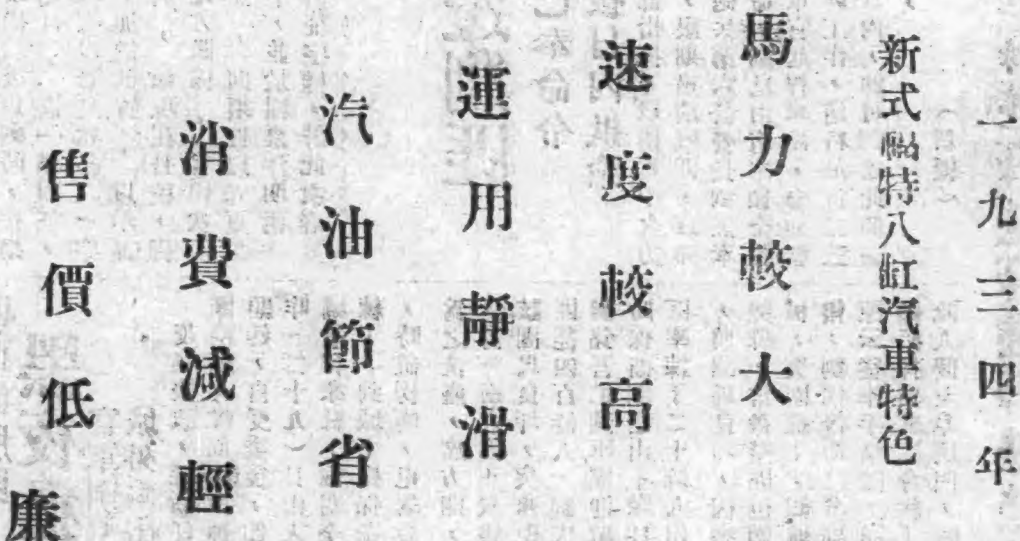 一九三四年
新式福特八缸汽車特色
馬力較大
速度較高
運用靜滑
汽油節省
消費減輕
售價低廉